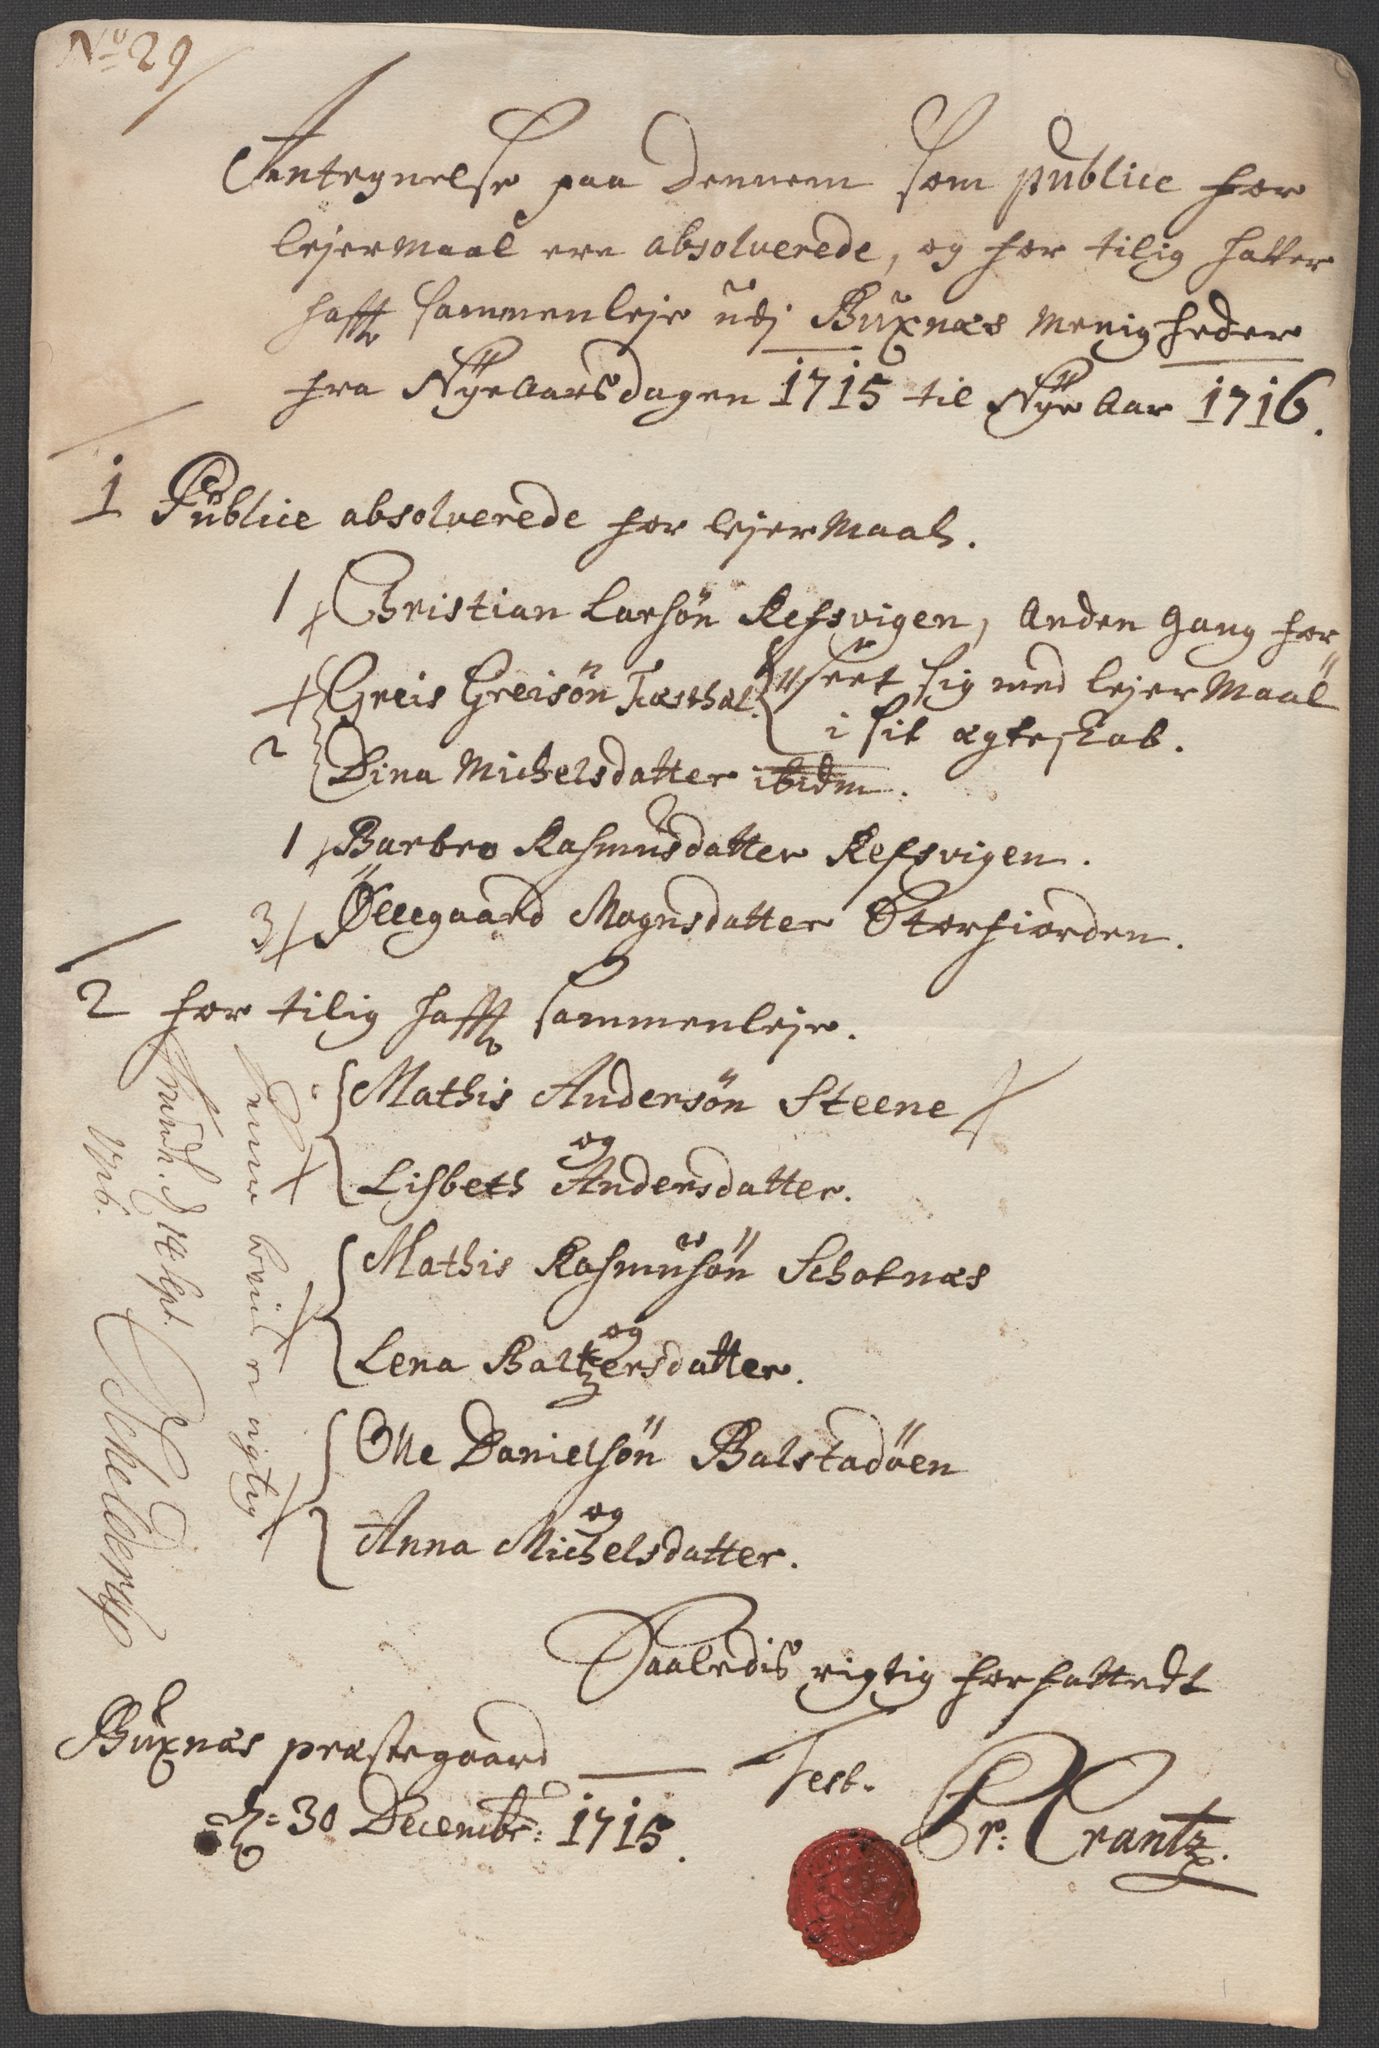 No 29
Antegnelse paa dennem som publice for
lejermaal ere absolverede, og for tilig hafver
hafft sammenleje udj Buxnæs Menigheder
fra Nyeaarsdagen 1715 til Nye Aar 1716.
1 Publice absolverede for lejermaal.
1 Christian Larsøn Refsvigen, Anden Gang for
seet sig med lejermaal
i sit ægteskab.
Greis Greisøn
2 Dina Michelsdatter ibidm.
1 Barbro Rasmusdatter Refsvigen.
3 Øllegaard Mognsdatter Storfiorden.
2 for tilig hafft sammenleje.
Mathis Andersøn Steene
og
Lisbeth Andersdatter.
Mathis Rasmusøn Scholnæs
og
Lena Baltzersdatter.
Olle Danielsøn Balstadøen
og
Anna Michelsdatter.
Saaledis rigtig forfattedt
Buxnæs præstegaard
d: 30 Decembr: 1715.
Test.
Pr: Crantz.
rigtig
Trundh. d 14 Sept.
1716.
Schelderup